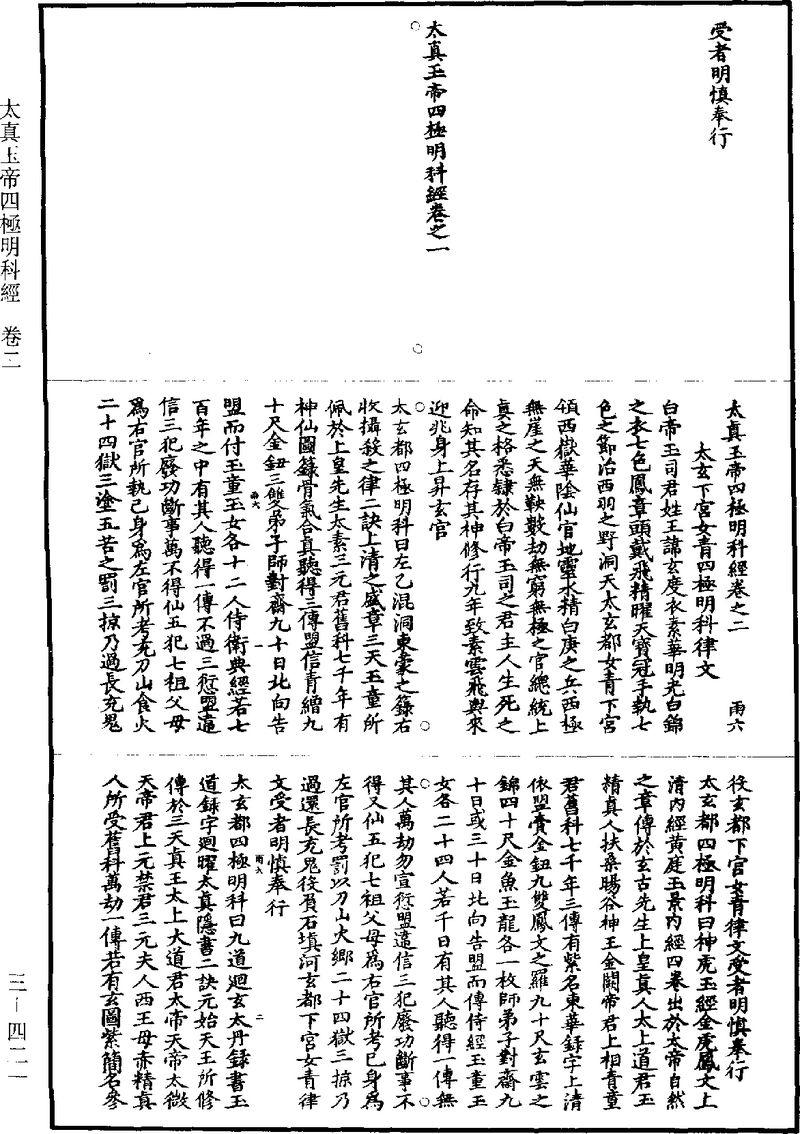 受者明慎奉行
太真玉帝四極明科經卷之一
太真玉帝四極明科經卷之二
雨六
太玄下宮女青四極明科律文
白帝玉司君姓王諱玄度衣素華明光白錦
之衣七色鳳章頭戴飛精曜天寶冠手執七
色之節治西羽之野洞天太玄都女青下宮
領西嶽華陰仙官地靈水精白庚之兵西極
無崖之天無鞅數劫無窮無極之官總統上
真之格悉隸於白帝玉司之君主人生死之
命知其名存其神修行九年致素雲飛輿來
迎兆身上昇玄宮
太玄都四極明科曰左乙混洞東蒙之錄右
收攝殺之律二訣上清之盛章三天玉童所
佩於上皇先生太素三元君舊科七千年有
神仙圖錄骨氣合真聽得三傳盟信青繒九
十尺金鈕三雙弟子師對齋九十日北向告
雨六
一
盟而付玉童玉女各十二人侍衛典經若七
百年之中有其人聽得一傳不過三愆盟違
信三犯廢功斷事萬不得仙五犯七祖父母
為右官所執己身為左官所考充刀山食火
二十四獄三塗五苦之罰三掠乃過長充鬼
役玄都下宮女青律文受者明慎奉行
太玄都四極明科曰神虎玉經金虎鳳文上
清內經黃庭玉景內經四卷出於太帝自然
之章傳於玄古先生上皇真人太上道君玉
精真人扶桑暘谷神王金闕帝君上相青童
君舊科七千年三傳有紫名東華錄字上清
依盟賫金鈕九雙鳳文之羅九十尺玄雲之
錦四十尺金魚玉龍各一枚師弟子對齋九
十日或三十日北向告盟而傳侍經玉童玉
女各二十四人若千日有其人聽得一傳無
其人萬劫勿宣愆盟違信三犯廢功斷事不
得又仙五犯七祖父母為右官所考己身為
左官所考罰以刀山火鄉二十四獄三掠乃
過還長充鬼役負石填河玄都下宮女青律
文受者明慎奉行
雨六
二
太玄都四極明科曰九道迴玄太丹錄書玉
道錄字迴曜太真隱書二訣元始天王所修
傳於三天真王太上大道君太帝天帝太微
天帝君上元禁君三元夫人西王母赤精真
人所受舊科萬劫一傳若有玄圖紫簡名參
太真玉帝四極明科經 卷二
三－四二一